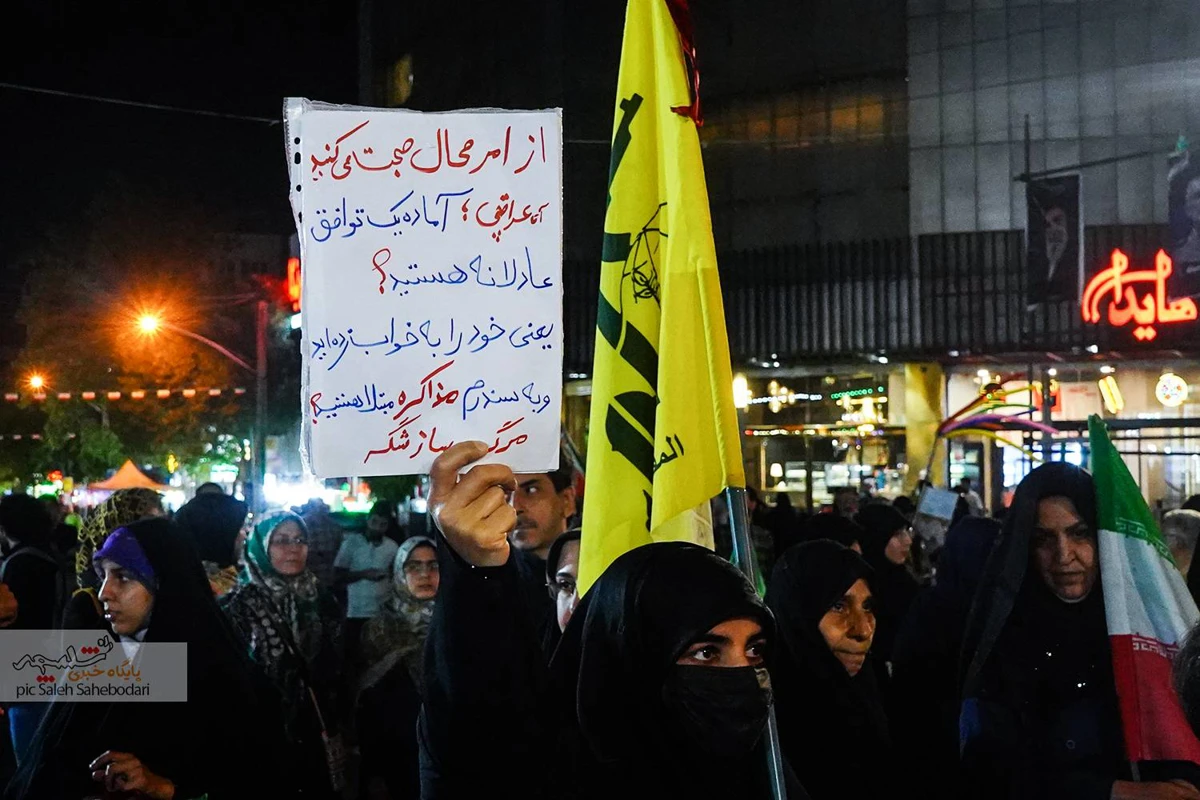 از امر محال صحبت می‌کنید
آقای عراقچی؛ آماده یک توافق
عادلانه هستید؟
یعنی خود را به خواب زده‌اید
و به سندرم مذاکره مبتلا هستید؟
مرگ بر سازشگر
هایدا
پایگاه خبری
pic Saleh Sahebodari